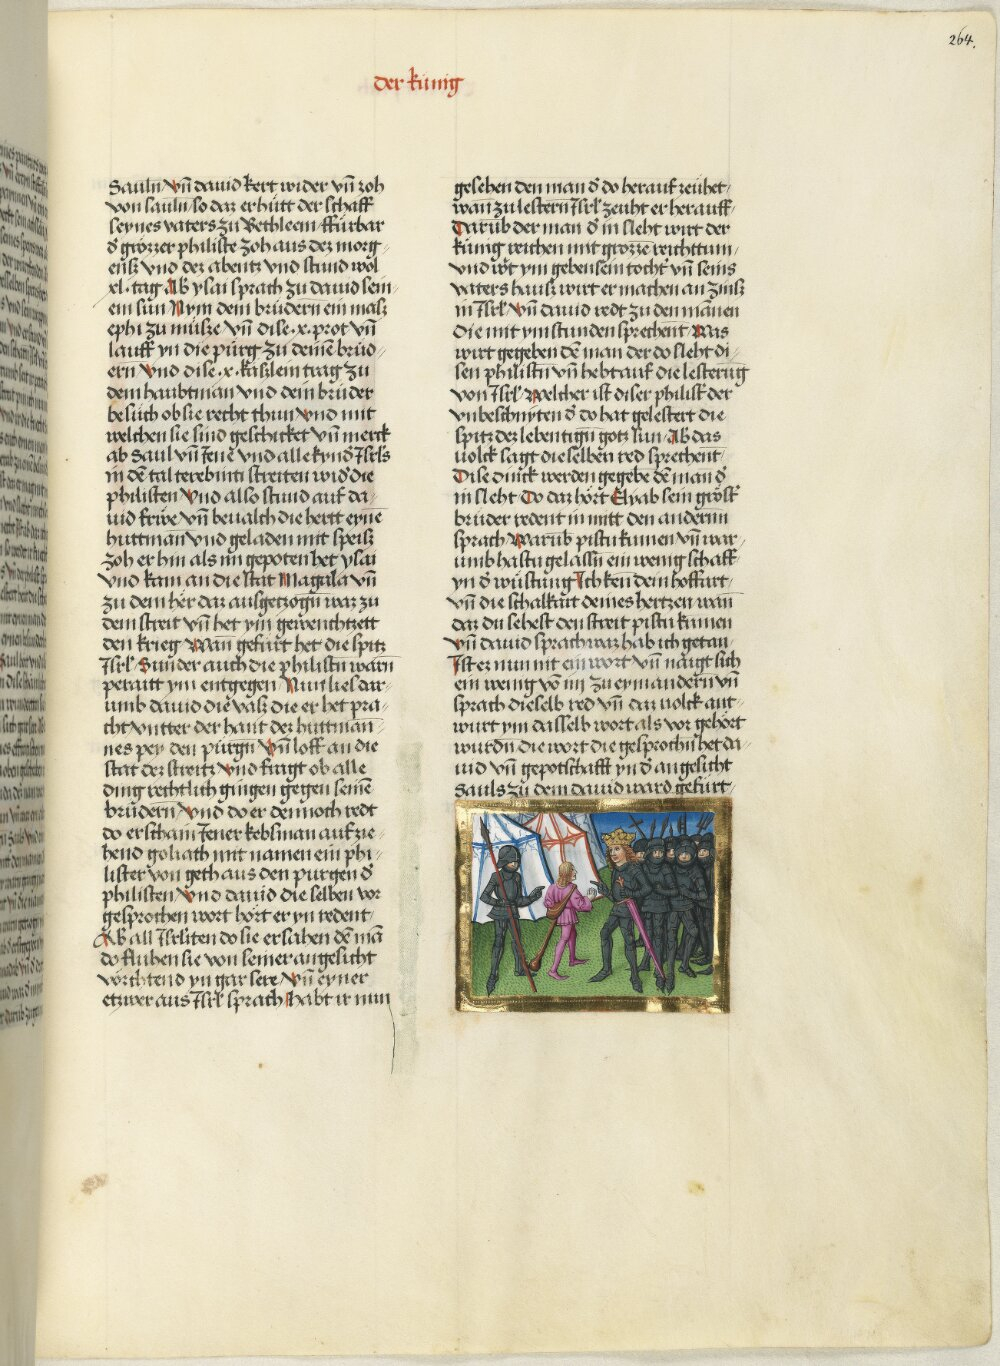 264.
der künig
Sauln vn̄ dauid kert wider vn̄ zoh
von sauln so daz er hütt der schaff
seynes vaters zu Bethleem ffürbar
d̄ grözzer philiste zoh aus dez morg
ens vnd dez abentz vnd stund wol
xl. tag Ab ysai sprach zu dauid sein
em sun Nym dein brüdern ein masz
ephi zu müsze vn̄ dise .x. prot vn̄
lauff yn die pürg zu deinē brüd
ern Vnd dise .x. käszlein trag zu
dem haubtman vnd dein brüder
besüch ob sie recht thun vnd mit
welchen sie sind geschicket vn̄ merck
ab Saul vn̄ Jene vnd alle kynd̄ Isrls
in dē tal terebinti streiten wid̄ die
philisten Vnd also stund auf da
uid frwe vn̄ beualch die hertt eynē
huttman Vnd geladen mit speisz
zoh er hin als im gepoten het ysai
vnd kam an die stat Magala vn̄
zu dem her daz ausgezogn̄ waz zu
dem streit vn̄ het ym geweichtzett
den krieg Wan gefürt het die spitz
Isrl̄ Sunder auch die philistn̄ warn
peraitt ym entgegen Nun lies dar
umb dauid die vasz die er het pra
cht vntter der hant der huttman
nes pey den pürgn̄ Vn̄ loff an die
stat dez streitz Vnd fragt ob alle
ding rechtlich gingen gegen seinē
brüdern Vnd do er dennoch redt
do erschain Jener kebsman auf zie
hend goliath mit namen ein phi
lister von geth aus den pürgen d̄
philisten Vnd dauid die selben vor
gesprochen wort hört er yn redent
Ab all Isrliten do sie ersahen dē mā
do fluhen sie von seiner angesicht
vörchtend yn gar sere Vn̄ eyner
etzwer aus Isrl̄ sprach habt ir nun
gesehen den man d̄ do herauf zeühet
wan zu lestern Isrl̄ zeuht er herauff
Darüb der man d̄ in sleht wirt der
künig reichen mit grozze reichttum
vnd wirt ym geben sein tocht' vn̄ seins
vaters hausz wirt er machen an zinsz
in Isrl̄ Vn̄ dauid redt zu den mānen
die mit ym stunden sprechent Was
wirt gegeben dē man der do sleht di
sen philistn̄ vn̄ hebt auf die lesterūg
von Isrl̄ Welcher ist diser philist̄ der
vnbeschnyten d̄ do hat gelestert die
spitz dez lebentign̄ gotz sun Ab das
uolck sagt die selben red sprechent
Dise dinck werden gegebē dē man d̄
in sleht Do daz hört Elyab sein gröst'
brüder redent in mitt den andernn
sprach Warūb pistu kumen vn̄ war
umb hastu gelassn̄ ein wenig schaff
yn d̄ wüstung Ich ken dein hoffart
vn̄ die schalkait deines hertzen wan
daz du sehest den streit pistu kumen
Vn̄ dauid sprach waz hab ich getan
Ist er nun nit ein wort vn̄ naigt sich
ein wenig vō im zu eym andern vn̄
sprach dieselb red vn̄ daz uolck ant
wurt ym dasselb wort als vor gehört
wurdn̄ die wort die gesprochn̄ het da
uid vn̄ gepotschafft yn d̄ angesicht
Sauls zu dem dauid ward gefürt